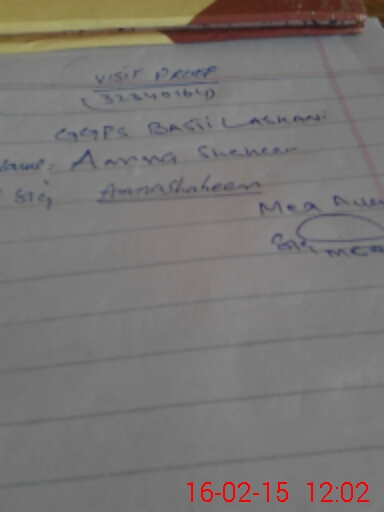 VISIT PROOF
(32340164)
GGPS BASTI LASHARI
Name: Aamna Shaheen
Sig Amnashaheen
Mea
Sig MEA
16-02-15 12:02